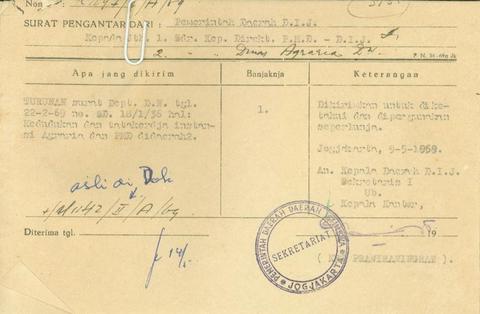 SURAT PENGANTAR DARI : Pemerintah Daerah D.I.J.
Kepada Jth. 1. Sdr. Kep. Direkt. P.M.D. - D.I.J.
2. - Dinas Agraria
Apa jang dikirim
Banjaknja
Keterangan
TURUNAN surat Dept. D.N. tgl.
22-2-69 no. SD. 18/1/36 hal:
Kedudukan dan tatakerdja instan-
si Agraria dan PMD didaerah2.
1.
Dikirimkan untuk dike-
tahui dan dipergunakan
seperlunja.
Jogjakarta, 9-5-1969.
An. Kepala Daerah D.I.J.
Sekretaris I
Ub.
Kepala Kantor,
asli di Dok
Diterima tgl.
19
PEMERINTAH DAERAH DAERAH ISTIMEWA
SEKRETARIAT
JOGJAKARTA